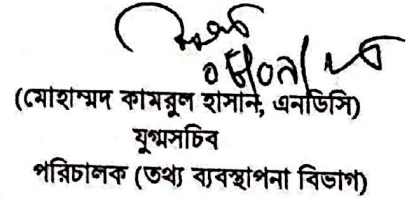 (মোহাম্মদ কামরুল হাসান, এনডিসি)
যুগ্মসচিব
পরিচালক (তথ্য ব্যবস্থাপনা বিভাগ)